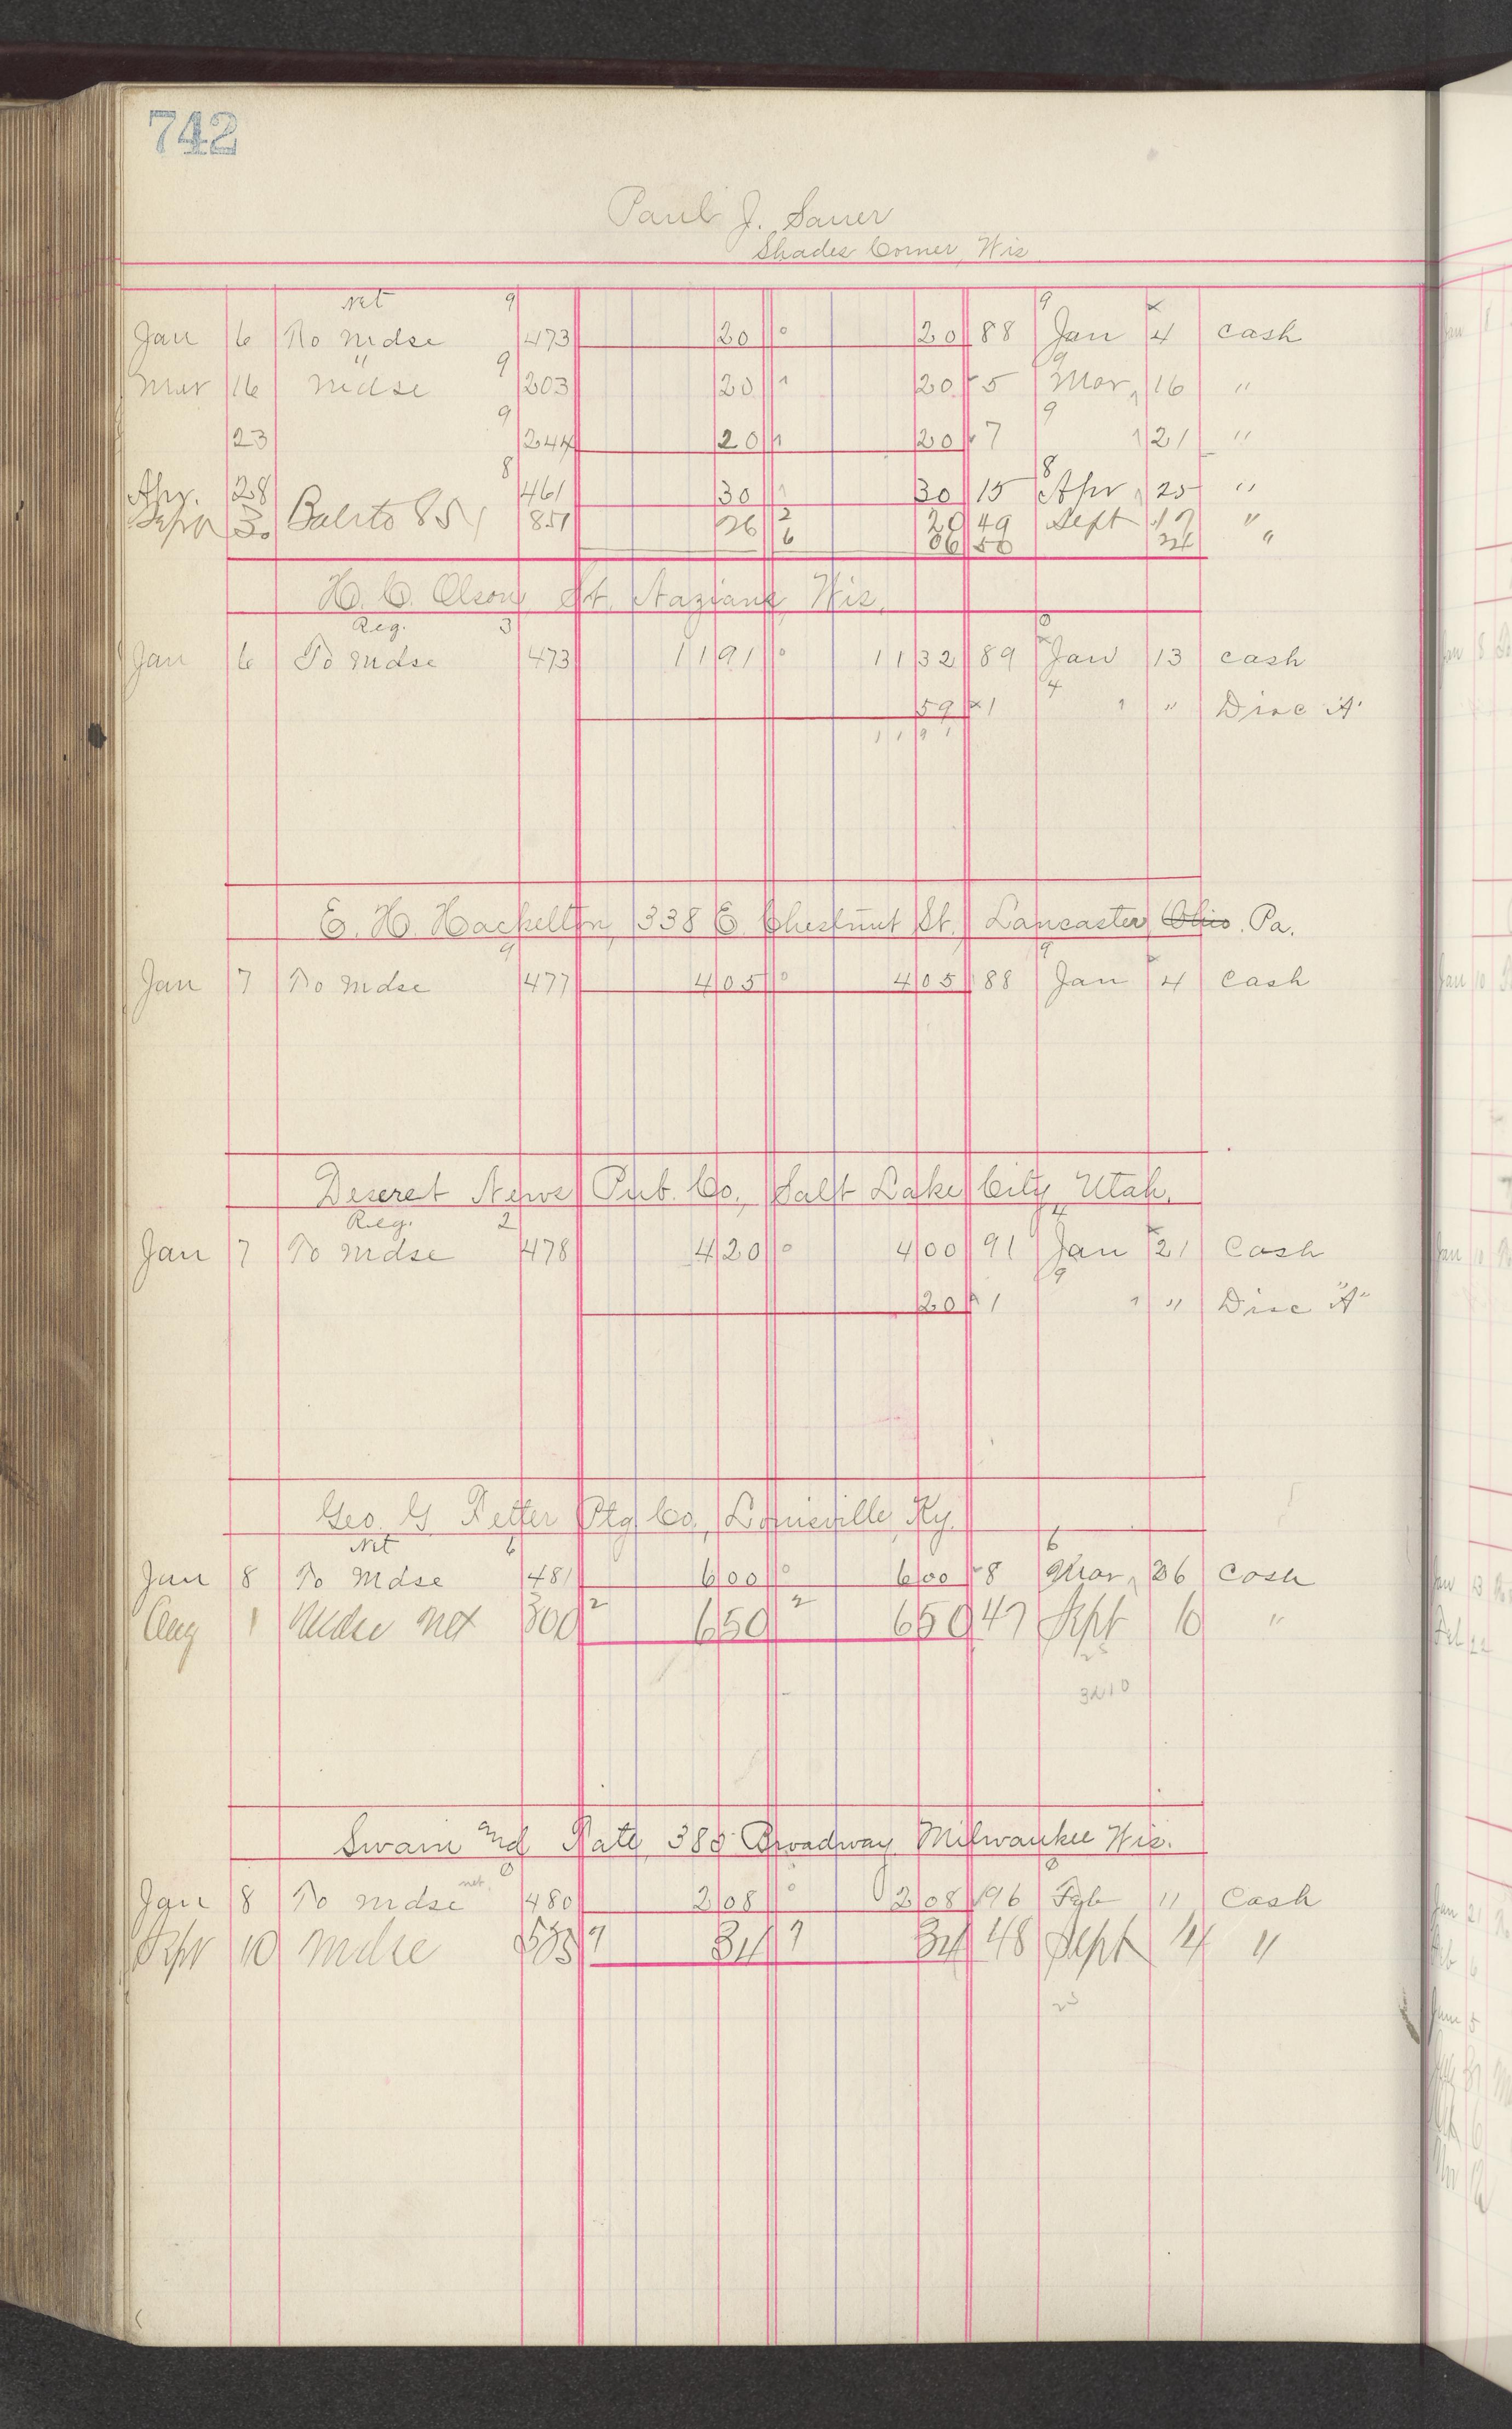 742
Paul J. Sauer
Shades Corner, Wis
Net 9 9
Jan 6 To Mdse 473 20 0 20 88 Jan 4 cash
9 " 9
Mar 16 Mdse 203 20 1 20 5 Mar 16 "
9 9
23 244 20 1 20 7 1 21 "
8 8
Apr. 28 461 30 1 30 15 Apr 25 "
Sept 30 Bal to 851 851 26 2 20 49 Sept 17 "
6 06 50 24 "
H. C. Olson St. Nazianz, Wis.
Reg. 3 8
Jan 6 To Mdse 473 11 91 0 11 32 89 Jan 13 cash
4
59 1 " " Disc "A"
11 91
E. H. Hackelton, 338 E. Chestnut St. Lancaster, Ohio. Pa.
9 9
Jan 7 To Mdse 477 4 05 0 4 05 88 Jan 4 Cash
Deseret News Pub. Co., Salt Lake City, Utah.
Reg. 2 4
Jan 7 To Mdse 478 4 20 0 4 00 91 Jan 21 Cash
9
20 1 " " Disc "A"
Geo. G Fetter Ptg Co., Louisville, Ky.
Net 6 6
Jan 8 To Mdse 481 6 00 0 6 00 8 Mar 26 Cash
Aug 1 Mdse net 300 2 6 50 2 6 50 47 Sept 10 "
25
3210
Swain and Tate, 385 Broadway, Milwaukee Wis.
0 8
Jan 8 To Mdse net. 480 2 08 0 2 08 96 Feb 11 Cash
Sept 10 Mdse 535 9 34 9 34 48 Sept 14 "
23